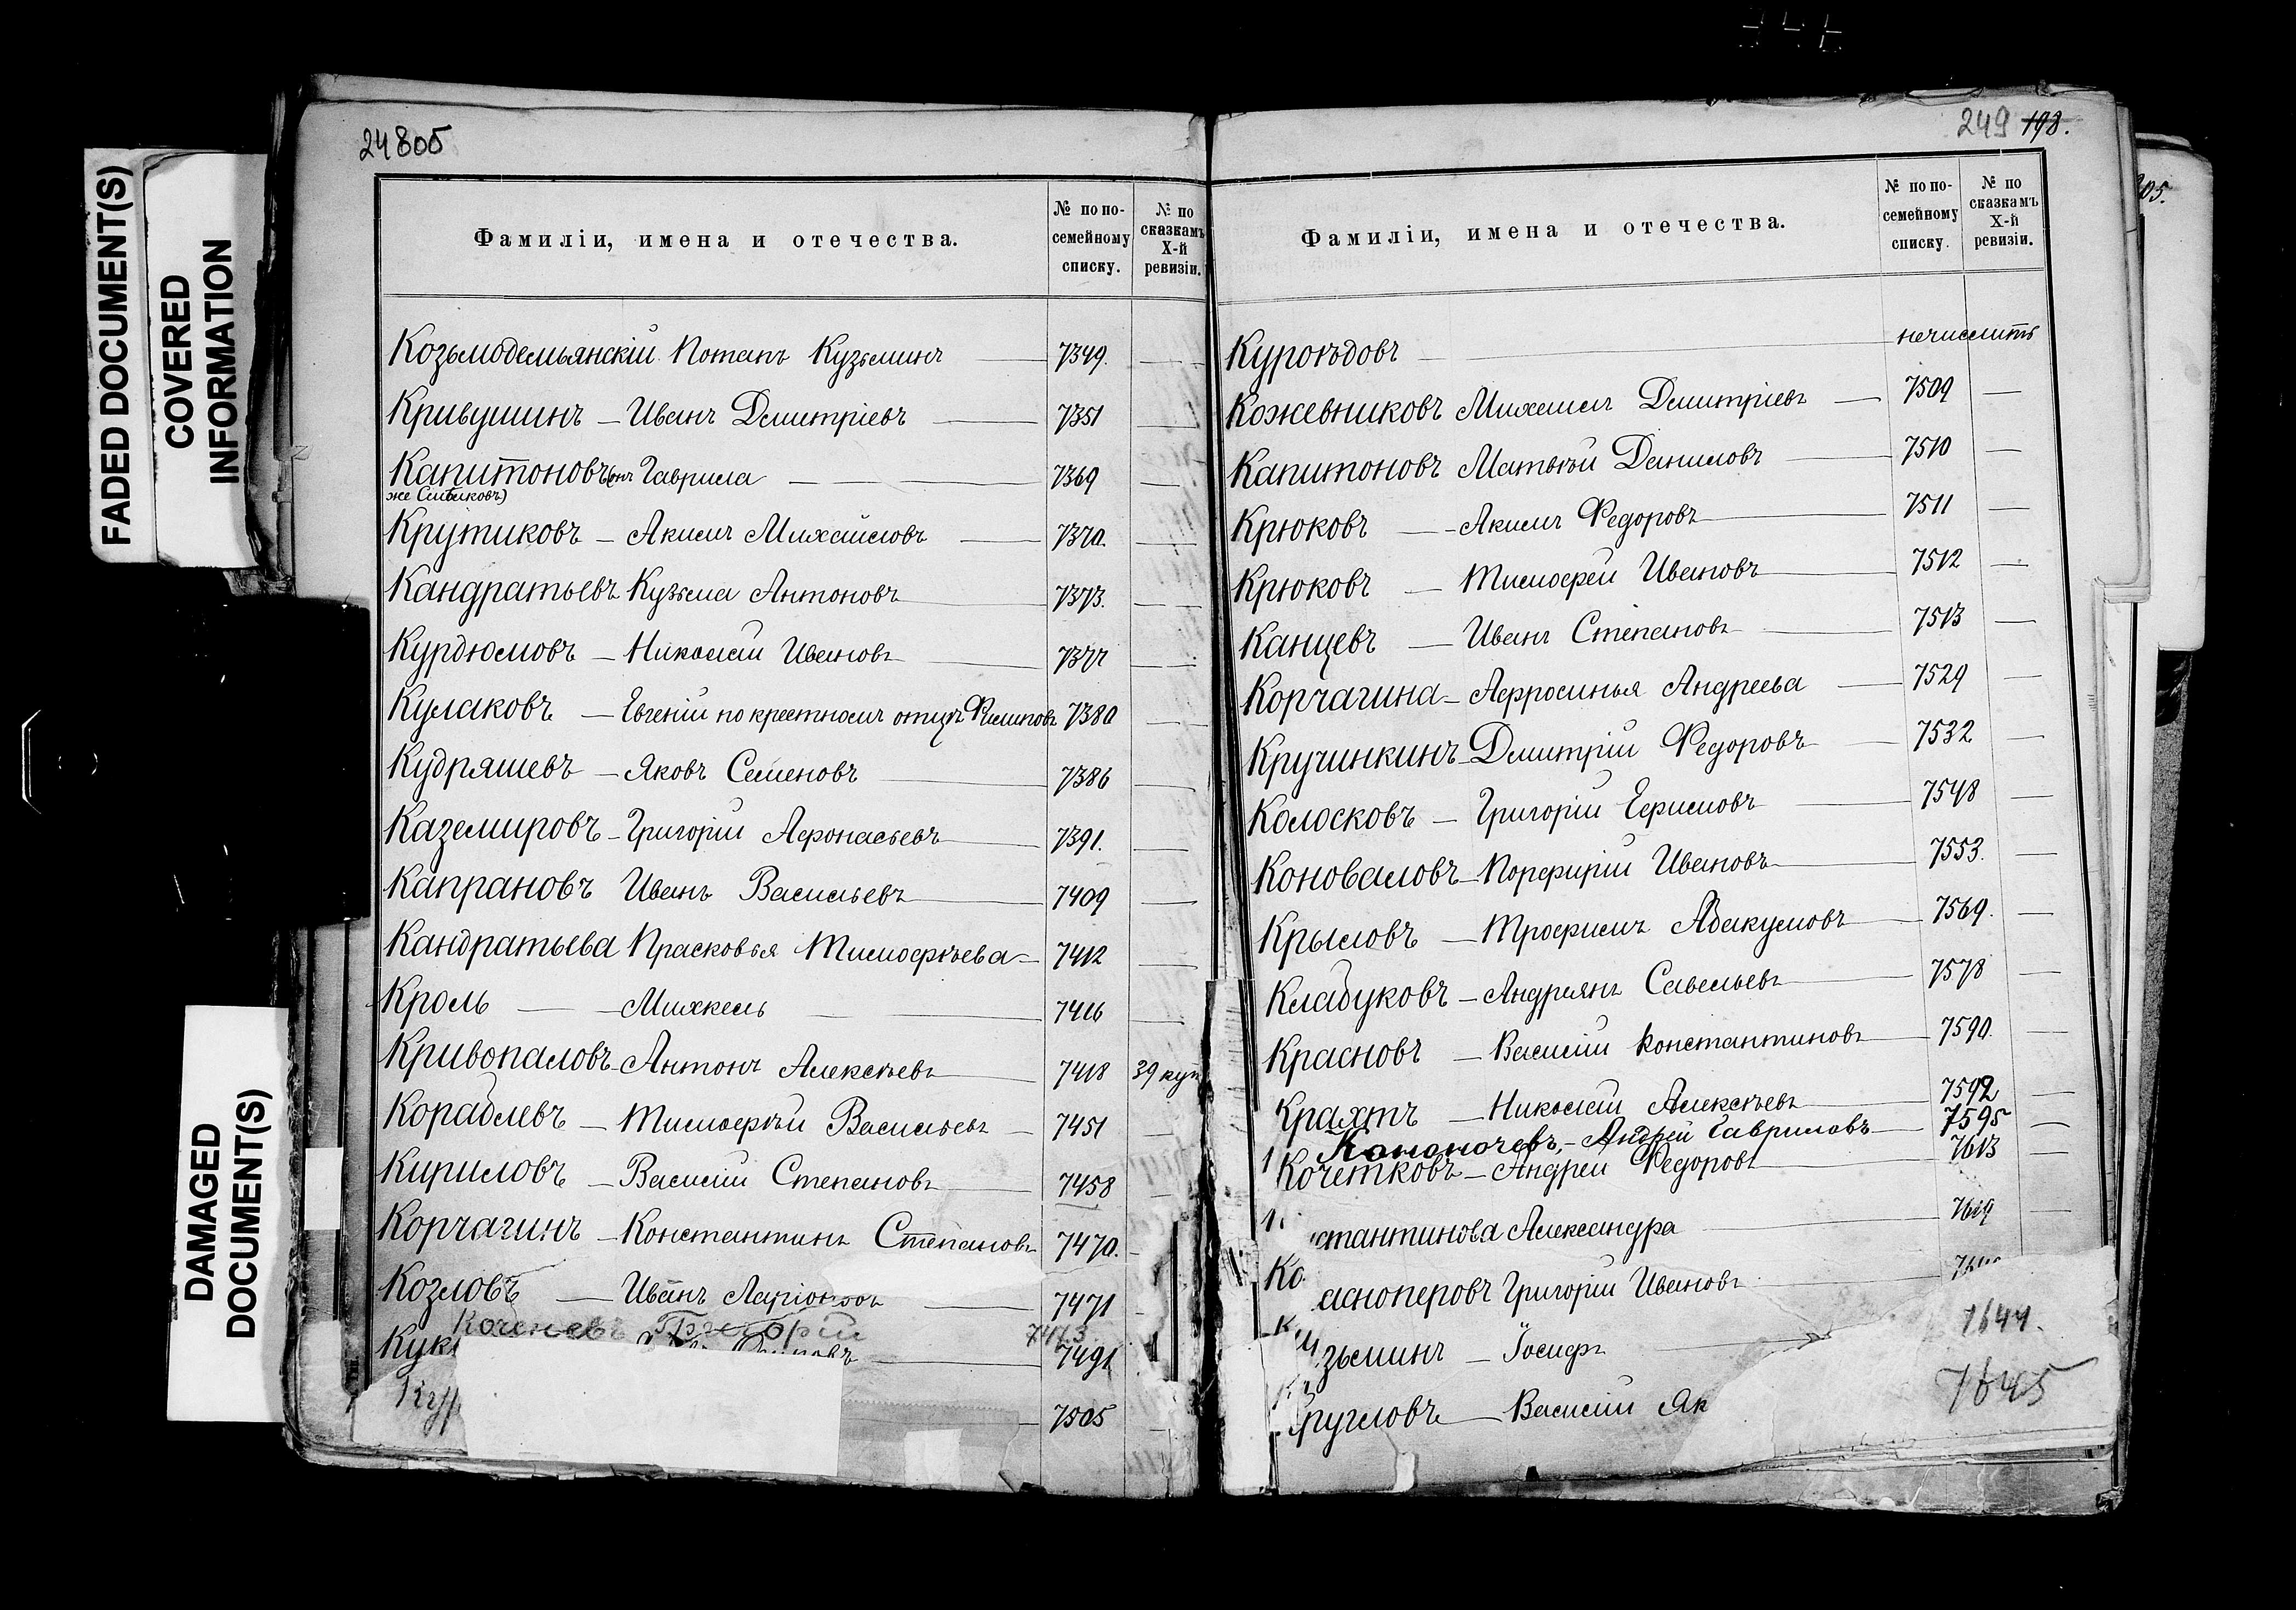 FADED DOCUMENT(S)
COVERED
INFORMATION
DAMAGED
DOCUMENT(S)
24805
Фамиліи, имена и отечества.
№ по по-
семейному
списку.
№ по
сказкамъ
X-й
ревизіи.
Козьмодемьянскій Потапъ Кузьминъ 7349.
Кривушинъ — Иванъ Дмитріевъ 7351
Капитоновъ (онъ Гаврила 7369
же Сибиковъ)
Крутиковъ — Акимъ Михайловъ 7370.
Кандратьевъ Кузьма Антоновъ 7373.
Курдюмовъ — Николай Ивановъ 7377
Кулаковъ — Евгеній по крестномъ отцѣ Филиповъ 7380
Кудряшевъ — Яковъ Семеновъ 7386
Каземировъ — Григорій Афонасьевъ 7391.
Капрановъ Иванъ Васильевъ 7409
Кандратьева Прасковья Тимофѣева — 7412
Кроль — Михкель 7416
Кривопаловъ — Антонъ Алексѣевъ 7418 39 куп
Кораблевъ — Тимофѣй Васильевъ — 7451
Кириловъ — Василій Степановъ 7458
Корчагинъ — Константинъ Степановъ 7470.
Козловъ — Иванъ Ларіоновъ 7471
Коченевъ Григорій 7473
Кук Осиповъ 7491
Кур 7505
249 198.
Фамиліи, имена и отечества.
№ по по-
семейному
списку.
№ по
сказкамъ
X-й
ревизіи.
Куроѣдовъ — нечислитъ
Кожевниковъ Михаилъ Дмитріевъ — 7509
Капитоновъ Матвѣй Даниловъ 7510
Крюковъ — Акимъ Федоровъ 7511
Крюковъ — Тимофей Ивановъ 7512
Канцевъ — Иванъ Степановъ 7513
Корчагина — Афросинья Андреева 7529
Кручинкинъ — Дмитрій Федоровъ 7532
Колосковъ — Григорій Ефимовъ 7548
Коноваловъ — Порфирій Ивановъ 7553.
Крыловъ — Трофимъ Абакумовъ 7569.
Кладуковъ — Андреянъ Савельевъ 7578
Красновъ — Василій Константиновъ 7590.
Крахтъ — Николай Алексѣевъ 7592
Андрей Гавриловъ 7595
Кочетковъ — Андрей Федоровъ 7613
стантинова Александра 7619
Ко
асноперовъ Григорій Ивановъ
зьминъ — Іосифъ 7644.
руговъ — Василій Як 7645
05.